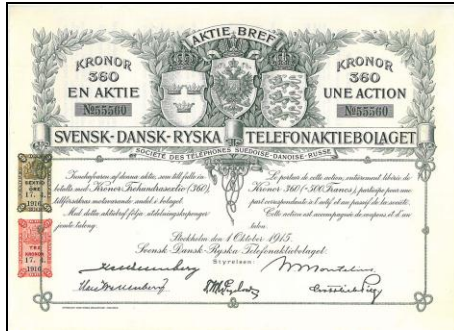 AKTIE BREF
KRONOR
360
EN AKTIE
№55560
KRONOR
360
UNE ACTION
№55560
SVENSK-DANSK-RYSKA TELEFONAKTIEBOLAGET
SOCIÉTÉ DES TÉLÉPHONES SUÉDOISE-DANOISE-RUSSE
Innehafvaren af denna aktie, som till fulla in-
betalts med Kronor Trehundrasextio (360),
tillförsäkras motsvarande andel i bolaget.
Med detta aktiebref följa utdelningskuponger
jemte talong.
Le porteur de cette action, entièrement libérée de
Kronor 360 (500 Francs), participe pour une
part correspondante à l'actif et au passif de la société.
Cette action est accompagnée de coupons et d'un
talon.
Stockholm den 1 Oktober 1915.
Svensk-Dansk-Ryska Telefonaktiebolaget
Styrelsen:
SEXTIO
ÖRE
17.
1916
TRE
KRONOR
17. 4.
1916